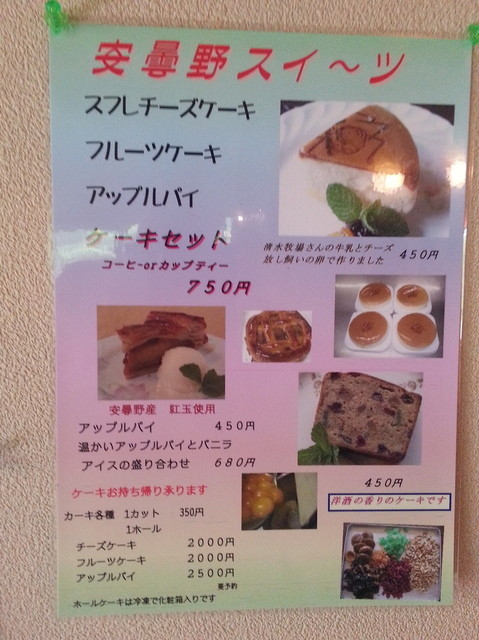 安曇野スイ～ツ
スフレチーズケーキ
フルーツケーキ
アップルパイ
ケーキセット
コーヒーorカップティー
750円
清水牧場さんの牛乳とチーズ
放し飼いの卵で作りました
450円
安曇野産 紅玉使用
アップルパイ 450円
温かいアップルパイとバニラ
アイスの盛り合わせ 680円
450円
洋酒の香りのケーキです
ケーキお持ち帰り承ります
カーキ各種 1カット 350円
1ホール
チーズケーキ 2000円
フルーツケーキ 2000円
アップルパイ 2500円
要予約
ホールケーキは冷凍で化粧箱入りです